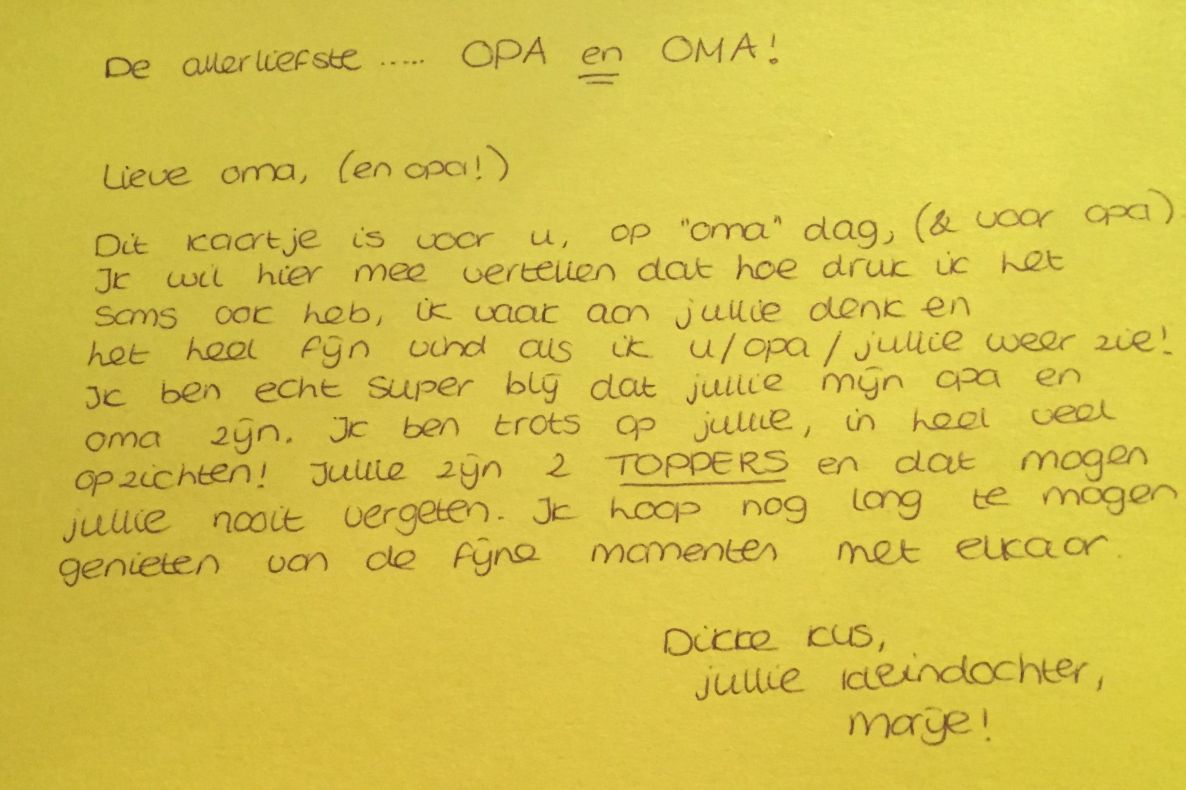 De allerliefste ..... OPA en OMA!
Lieve oma, (en opa!)
Dit kaartje is voor u, op "oma" dag, (& voor opa)
Ik wil hier mee vertellen dat hoe druk ik het
soms ook heb, ik vaak aan jullie denk en
het heel fijn vind als ik u/opa/jullie weer zie!
Ik ben echt super blij dat jullie mijn opa en
oma zijn. Ik ben trots op jullie, in heel veel
opzichten! Jullie zijn 2 TOPPERS en dat mogen
jullie nooit vergeten. Ik hoop nog lang te mogen
genieten van de fijne momenten met elkaar.
Dikke kus,
jullie kleindochter,
Marije!